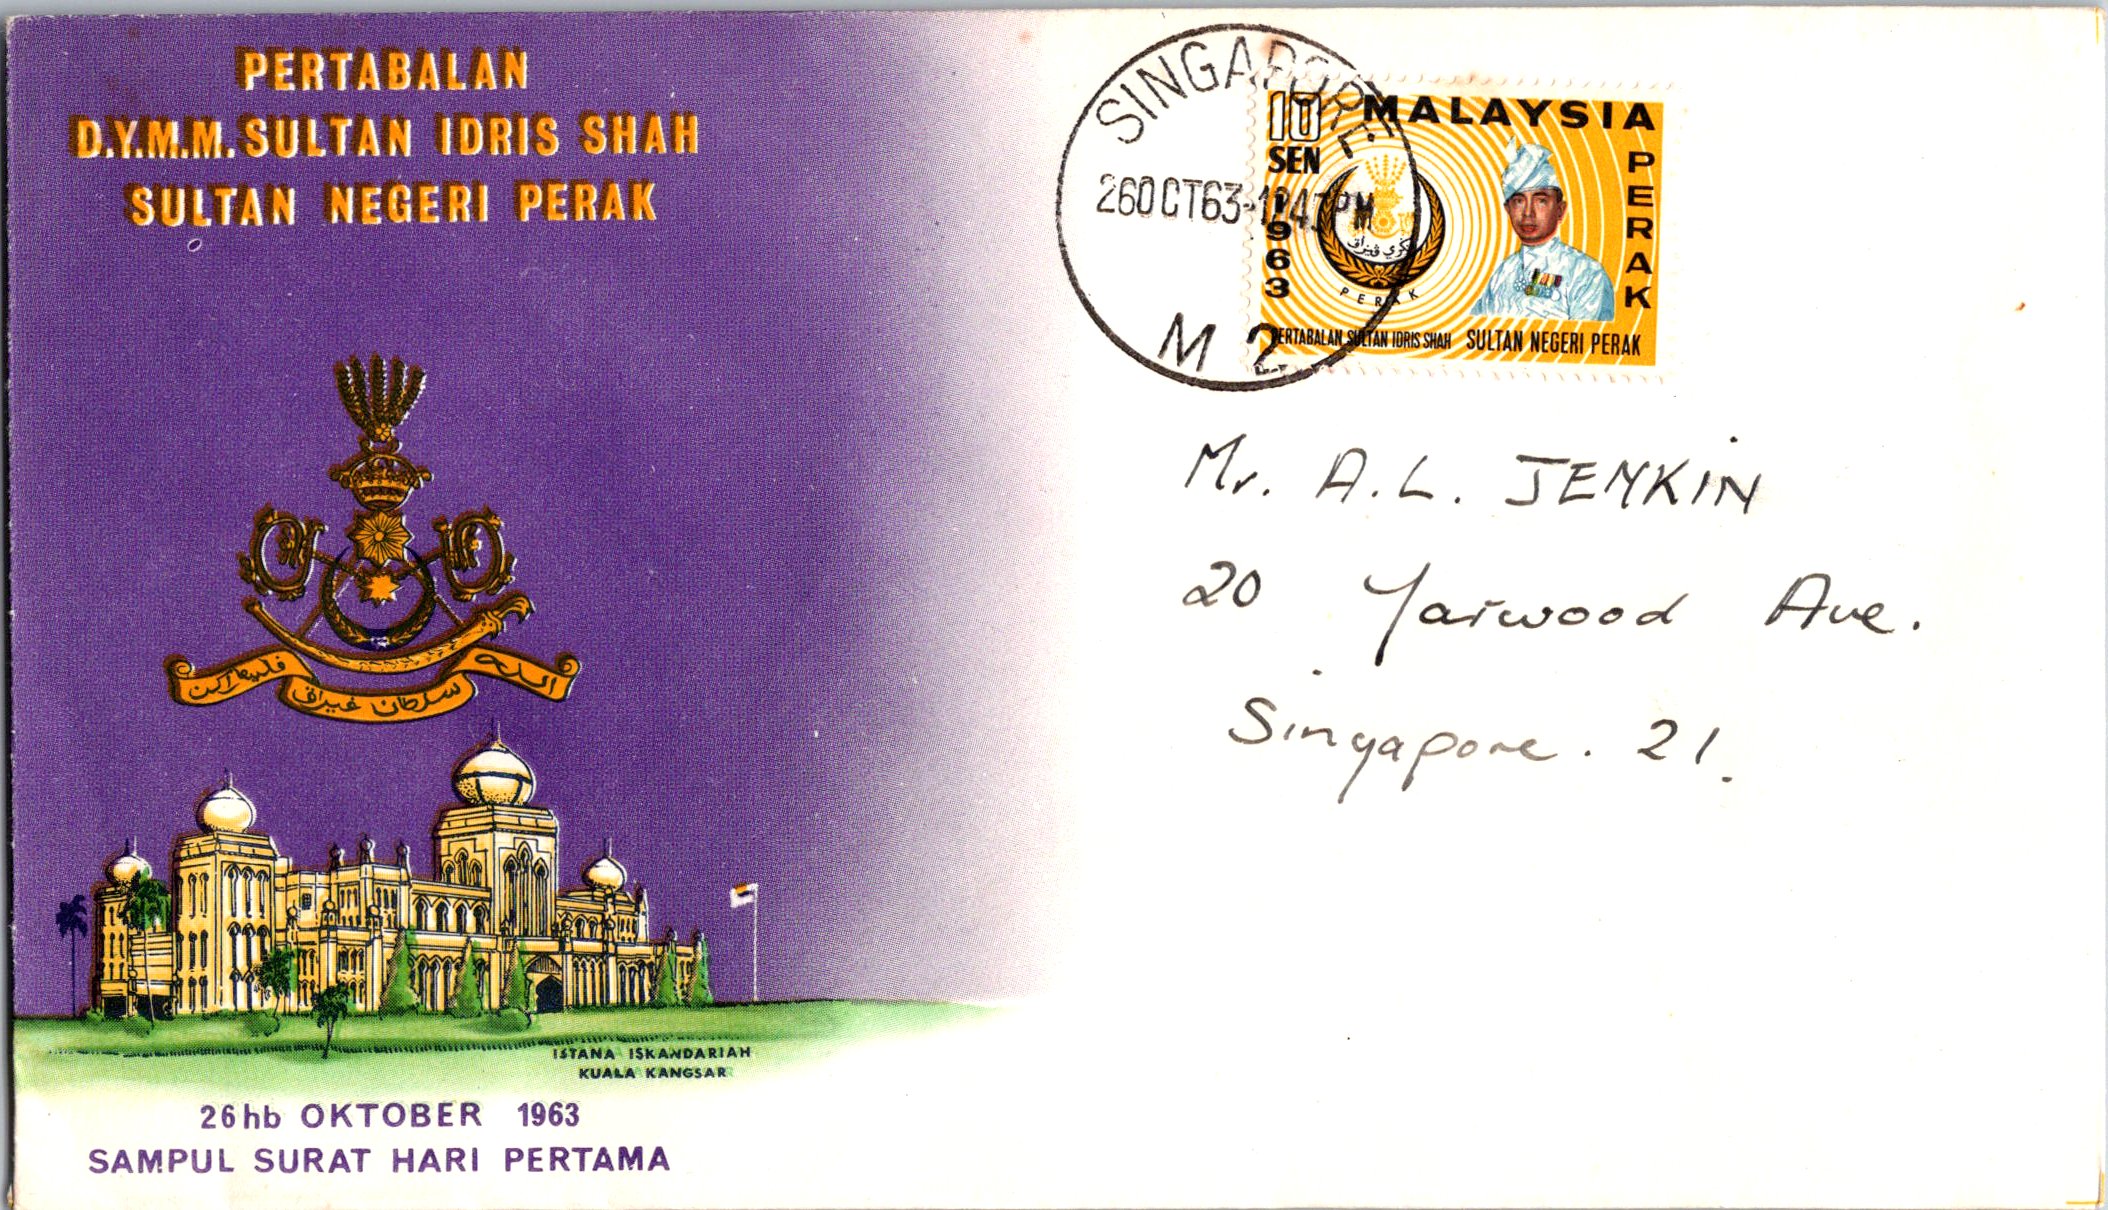 PERTABALAN
D.Y.M.M. SULTAN IDRIS SHAH
SULTAN NEGERI PERAK
سلطان
ISTANA ISKANDARIAH
KUALA KANGSAR
26hb OKTOBER 1963
SAMPUL SURAT HARI PERTAMA
SINGAPORE
26OCT63
PM
M 2
10
SEN
1963
MALAYSIA
PERAK
PERAK
PERTABALAN SULTAN IDRIS SHAH SULTAN NEGERI PERAK
Mr. A.L. JENKIN
20 Yarwood Ave.
Singapore. 21.